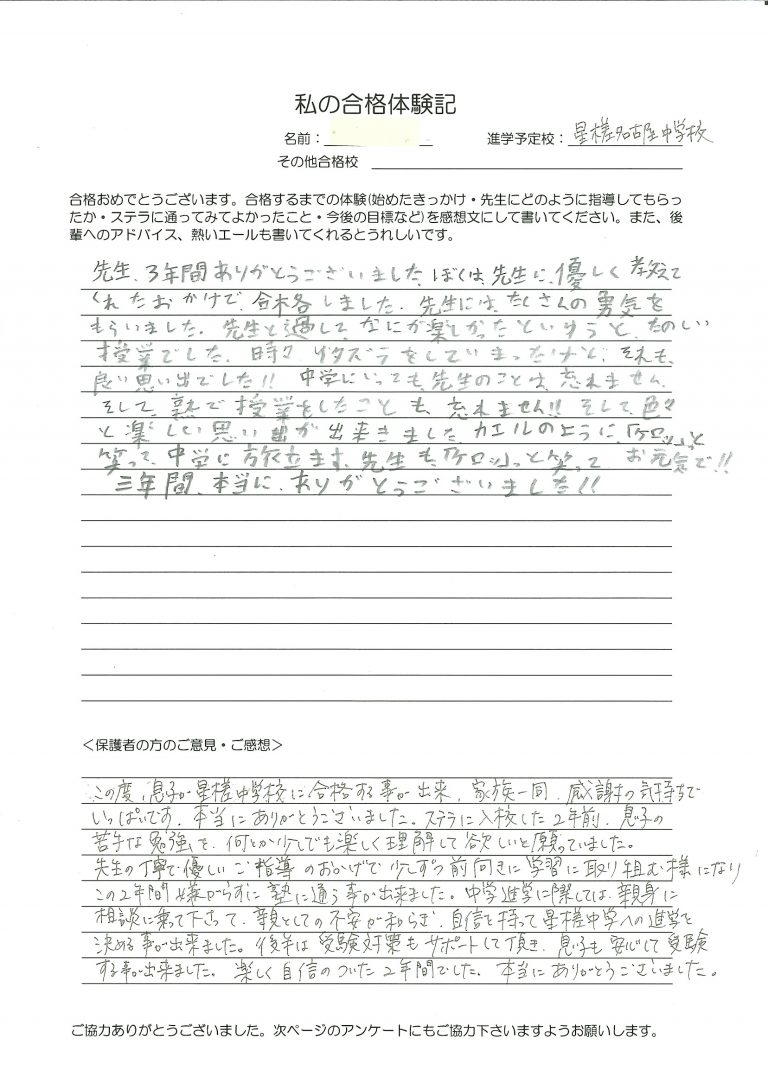 私の合格体験記
名前：
進学予定校：星槎名古屋中学校
その他合格校
合格おめでとうございます。合格するまでの体験(始めたきっかけ・先生にどのように指導してもらっ
たか・ステラに通ってみてよかったこと・今後の目標など)を感想文にして書いてください。また、後
輩へのアドバイス、熱いエールも書いてくれるとうれしいです。
先生、3年間ありがとうございました。ぼくは、先生に、優しく教えて
くれたおかげで、合格しました。先生には、たくさんの勇気を
もらいました。先生と過して、なにが楽しかったというと、たのしい
授業でした。時々、イタズラをしていまったけど、それも、
良い思い出でした!! 中学にいっても、先生のことは、忘れません。
そして、塾で授業をしたことも、忘れません!! そして、色々
と楽しい思い出が出来きました。カエルのように、「ケロッ」と
笑って、中学に旅立ます。先生も「ケロッ」っと笑って お元気で!!
三年間、本当に、ありがとうございました!!
＜保護者の方のご意見・ご感想＞
この度、息子が星槎中学校に合格する事が出来、家族一同、感謝の気持ちで
いっぱいです。本当にありがとうございました。ステラに入校した2年前、息子の
苦手な勉強を、何とか少しでも楽しく理解して欲しいと願っていました。
先生の丁寧で優しいご指導のおかげで少しずつ前向きに学習に取り組む様になり
この2年間嫌がらずに塾に通う事が出来ました。中学進学に際しては、親身に
相談に乗って下さって、親としての不安が和らぎ、自信を持って星槎中学への進学を
決める事が出来ました。後半は受験対策もサポートして頂き、息子も安心して受験
する事が出来ました。楽しく自信のついた2年間でした。本当にありがとうございました。
ご協力ありがとうございました。次ページのアンケートにもご協力下さいますようお願いします。